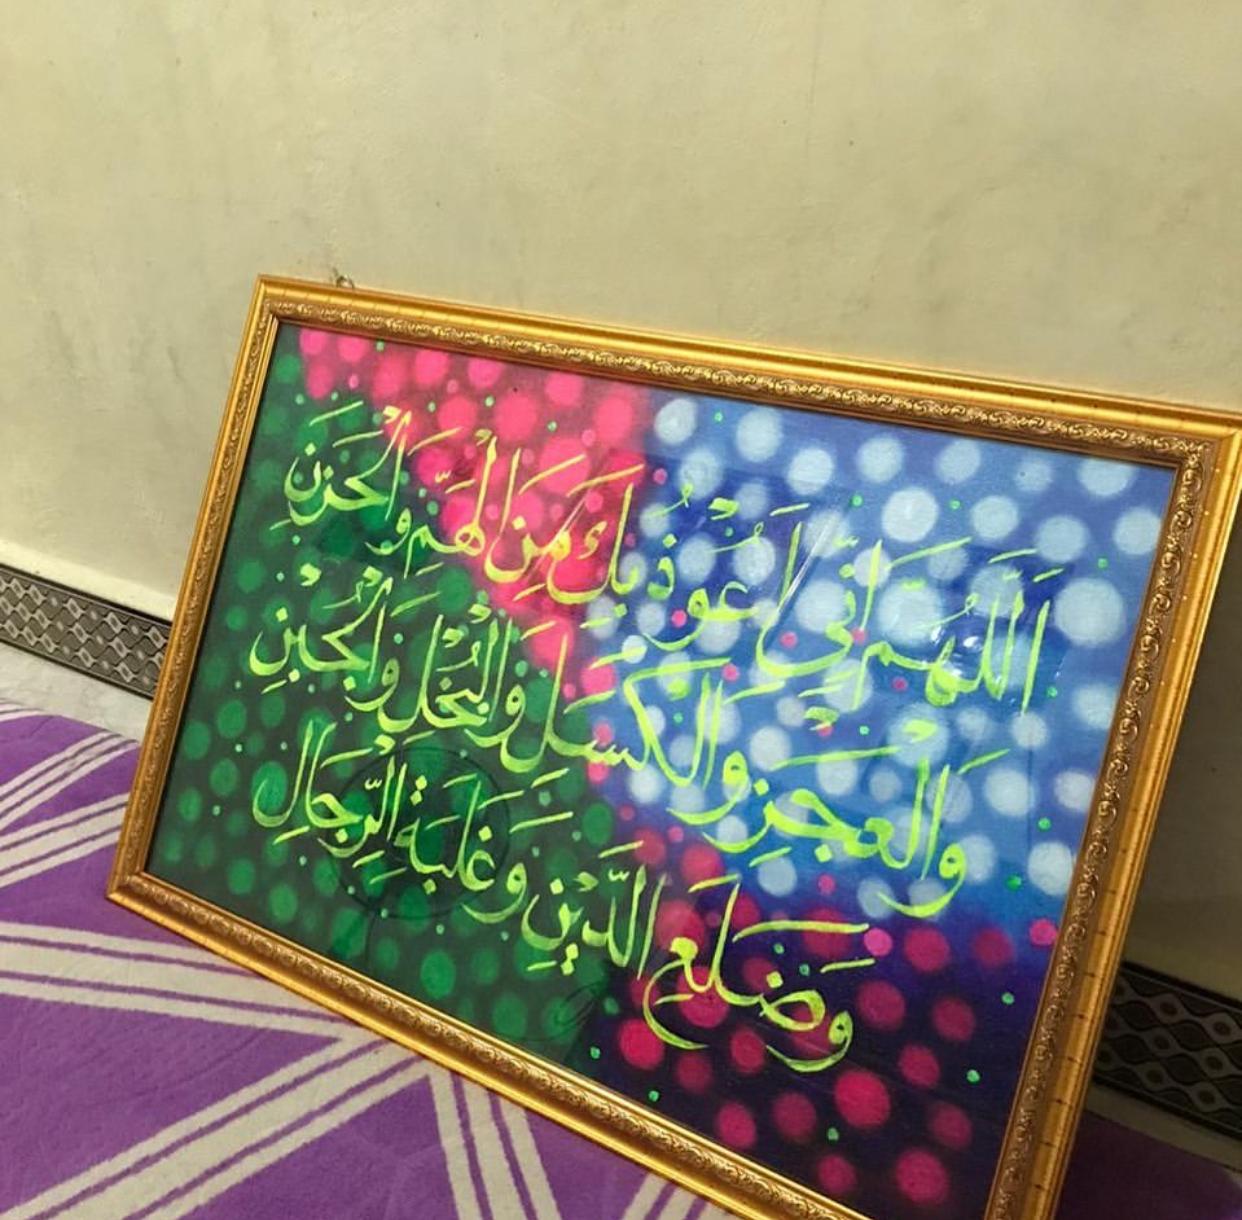 اَللّٰهُمَّ اِنِّي اَعُوْذُ بِكَ مِنَ الْهَمِّ وَالْحَزَنِ
وَالْعَجْزِ وَالْكَسَلِ وَالْبُخْلِ وَالْجُبْنِ
وَضَلَعِ الدَّيْنِ وَغَلَبَةِ الرِّجَالِ